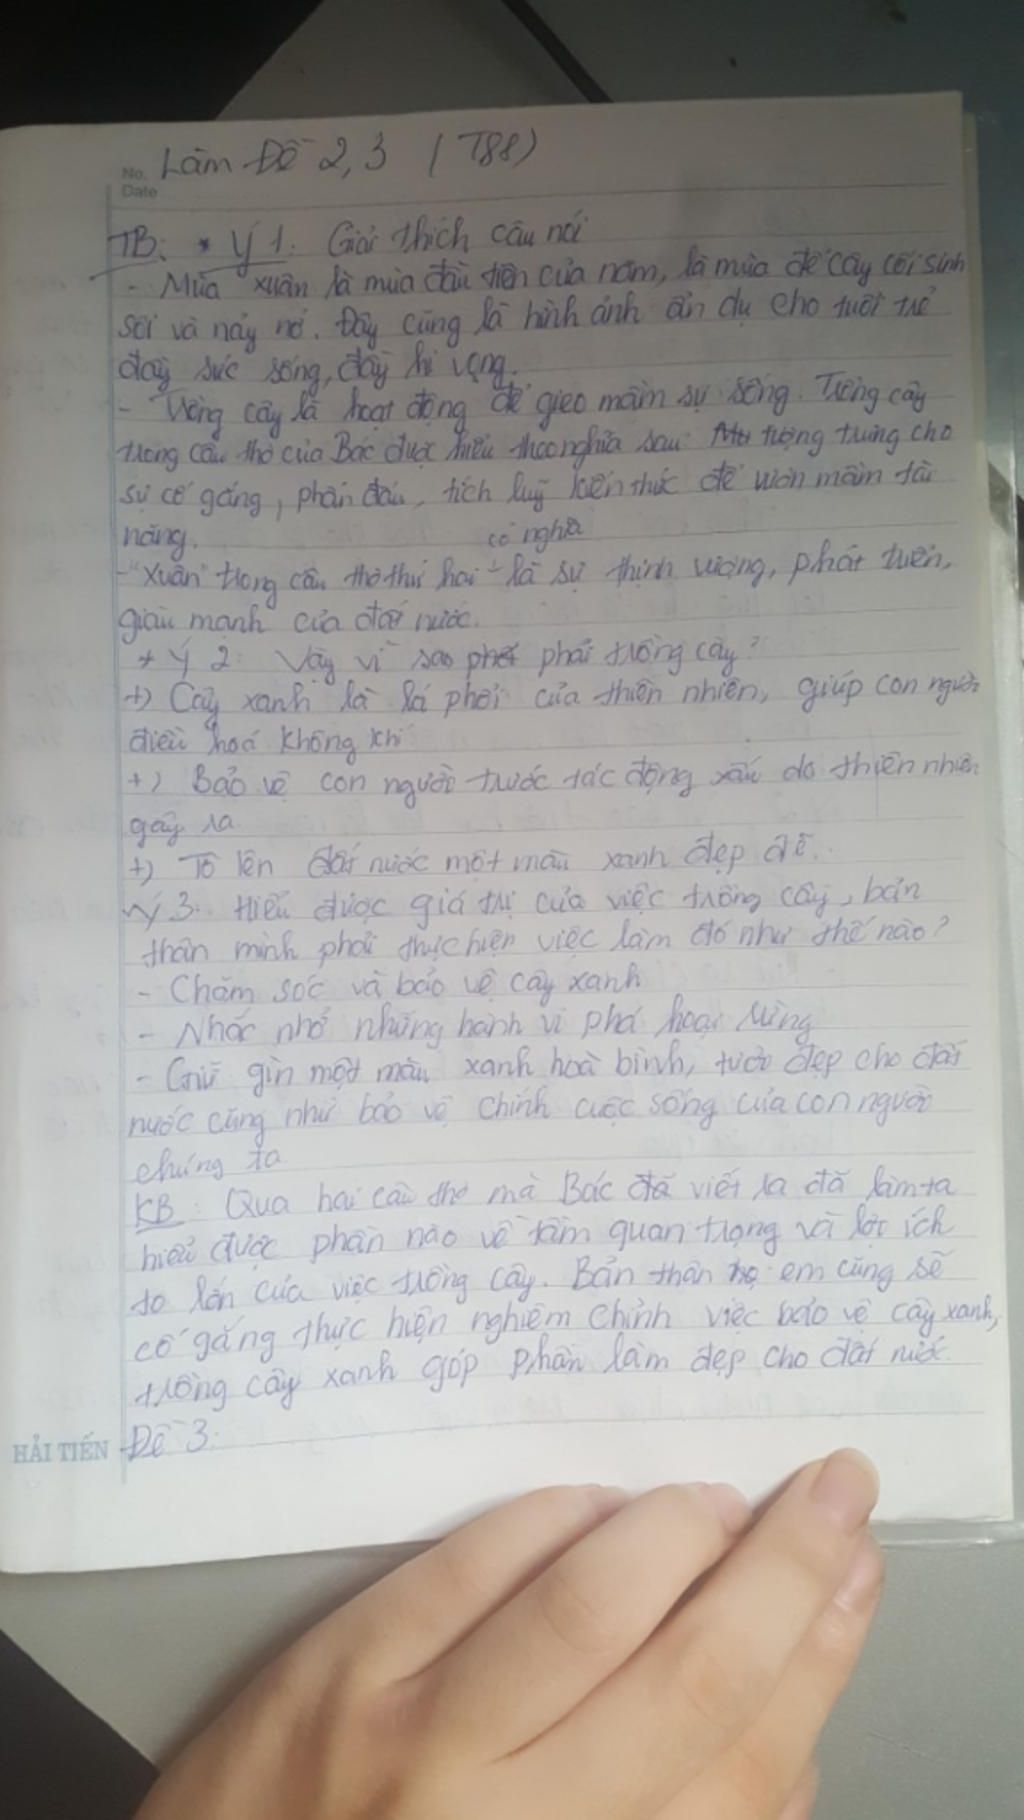 No. Làm Đề 2, 3 (T88)
Date
TB: * Ý 1: Giải thích câu nói
- Mùa xuân là mùa đầu tiên của năm, là mùa để cây cối sinh
sôi và nảy nở. Đây cũng là hình ảnh ẩn dụ cho tuổi trẻ
đầy sức sống, đầy hi vọng.
- Trồng cây là hoạt động để gieo mầm sự sống. Trồng cây
trong câu thơ của Bác được hiểu theo nghĩa sau: tượng trưng cho
sự cố gắng, phấn đấu, tích luỹ kiến thức để ươn mầm tài
năng.
có nghĩa
- "Xuân" trong câu thơ thứ hai là sự thịnh vượng, phát triển,
giàu mạnh của đất nước.
* Ý 2: Vậy vì sao phải trồng cây?
+) Cây xanh là lá phổi của thiên nhiên, giúp con người
điều hoá không khí
+) Bảo vệ con người trước tác động xấu do thiên nhiên
gây ra
+) Tô lên đất nước một màu xanh đẹp đẽ.
Ý 3: Hiểu được giá trị của việc trồng cây, bản
thân mình phải thực hiện việc làm đó như thế nào?
- Chăm sóc và bảo vệ cây xanh
- Nhắc nhở những hành vi phá hoại rừng
- Giữ gìn một màu xanh hoà bình, tươi đẹp cho đất
nước cũng như bảo vệ chính cuộc sống của con người
chúng ta
KB: Qua hai câu thơ mà Bác đã viết ra đã làm ta
hiểu được phần nào về tầm quan trọng và lợi ích
to lớn của việc trồng cây. Bản thân em cũng sẽ
cố gắng thực hiện nghiêm chỉnh việc bảo vệ cây xanh,
trồng cây xanh góp phần làm đẹp cho đất nước.
HẢI TIẾN Đề 3: